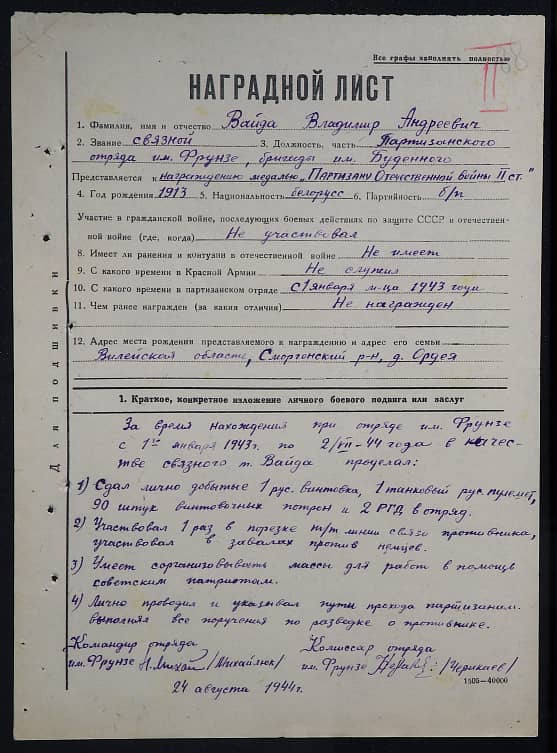 Все графы заполнять полностью
II
НАГРАДНОЙ ЛИСТ
1. Фамилия, имя и отчество Вайда Владимир Андреевич
2. Звание связной 3. Должность, часть Партизанского
отряда им. Фрунзе, бригады им. Буденного
Представляется к награждению медалью „Партизану Отечественной войны II ст."
4. Год рождения 1913 5. Национальность белорусс 6. Партийность б/п
Участие в гражданской войне, последующих боевых действиях по защите СССР и отечествен-
ной войне (где, когда) Не участвовал
8. Имеет ли ранения и контузии в отечественной войне Не имеет
9. С какого времени в Красной Армии Не служил
10. С какого времени в партизанском отряде с 1 января м-ца 1943 года
11. Чем ранее награжден (за какия отличия) Не награжден
12. Адрес места рождения представляемого к награждению и адрес его семьи
Вилейской области, Сморгонский р-н, д. Ордея
Для подшивки
1. Краткое, конкретное изложение личного боевого подвига или заслуг
За время нахождения при отряде им. Фрунзе
с 1го января 1943г. по 2/VII-44 года в каче-
стве связного т. Вайда проделал:
1) Сдал лично добытые 1 рус. винтовка, 1 танковый рус. пулемет,
90 штук винтовочных потрон и 2 РГД в отряд.
2) Участвовал 1 раз в порезке т/т линии связи противника,
участвовал в завалах против немцев.
3) Умеет сорганизовывать массы для работ в помощь
советским патриотам.
4) Лично проводил и указывал пути прохода партизанам.
выполнял все поручения по разведке о противнике.
Командир отряда Комиссар отряда
им. Фрунзе /Михайлюк/ им. Фрунзе /Черикаев/
24 августа 1944г. 1505—40000